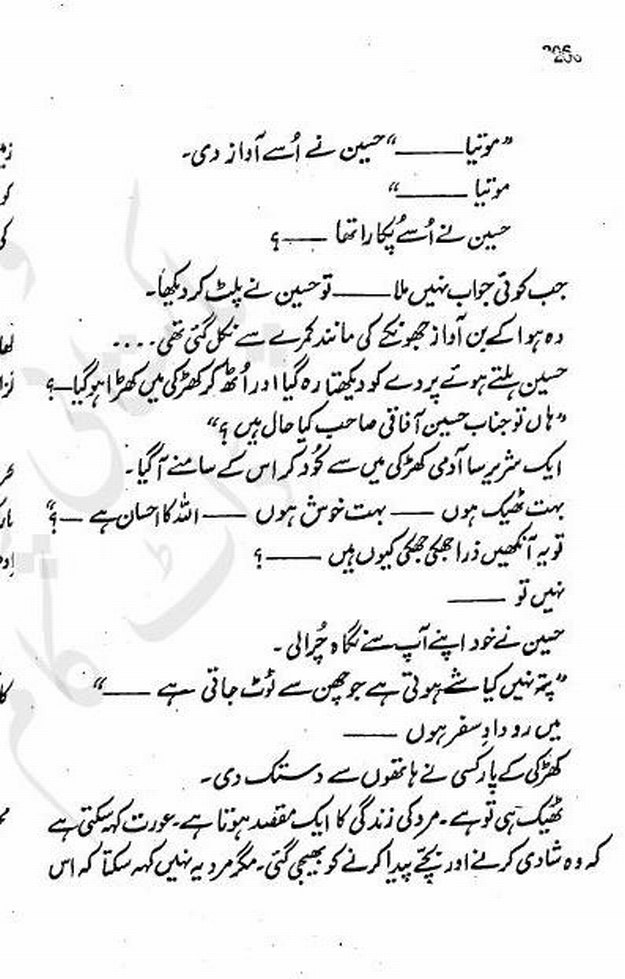 206
"موتیا ——" حسین نے اُسے آواز دی۔
موتیا ——"
حسین نے اُسے پُکارا تھا ——؟
جب کوئی جواب نہیں ملا —— تو حسین نے پلٹ کر دیکھا۔
وہ ہوا کے بن آواز جھونکے کی مانند کمرے سے نکل گئی تھی....
حسین ہلتے ہوئے پردے کو دیکھتا رہ گیا اور اُٹھ کر کھڑکی میں کھڑا ہو گیا—؟
"ہاں تو جناب حسین آفاقی صاحب کیا حال ہیں؟"
ایک شریر سا آدمی کھڑکی میں سے کُود کر اس کے سامنے آ گیا۔
بہت ٹھیک ہوں —— بہت خوش ہوں —— اللہ کا احسان ہے —؟"
تو یہ آنکھیں ذرا جھکی جھکی کیوں ہیں ——؟
نہیں تو ——
حسین نے خود اپنے آپ سے نگاہ چُرا لی۔
"پتہ نہیں کیا شے ہوتی ہے جو چھن سے ٹوٹ جاتی ہے ——"
میں رودادِ سفر ہوں ——
کھڑکی کے پار کسی نے ہاتھوں سے دستک دی۔
ٹھیک ہی تو ہے۔ مرد کی زندگی کا ایک مقصد ہوتا ہے۔ عورت کہہ سکتی ہے
کہ وہ شادی کرنے اور بچے پیدا کرنے کو بھیجی گئی۔ مگر مرد یہ نہیں کہہ سکتا کہ اس